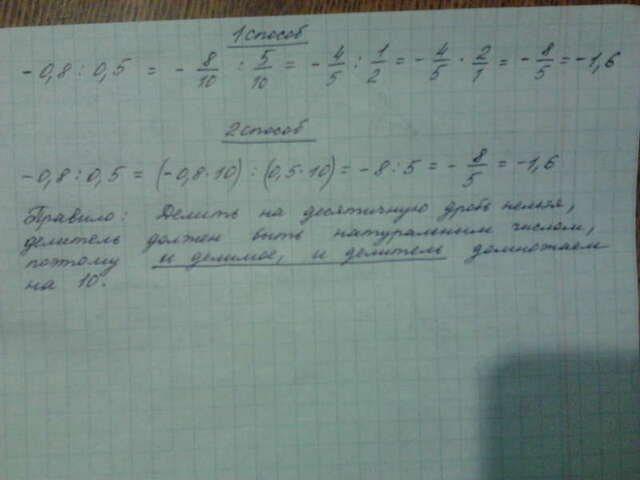 1 способ
- 0,8 : 0,5 = - 8/10 : 5/10 = - 4/5 : 1/2 = - 4/5 · 2/1 = - 8/5 = -1,6
2 способ
-0,8 : 0,5 = (-0,8·10) : (0,5·10) = -8 : 5 = - 8/5 = -1,6
Правило: Делить на десятичную дробь нельзя,
делитель должен быть натуральным числом,
поэтому и делимое, и делитель домножаем
на 10.